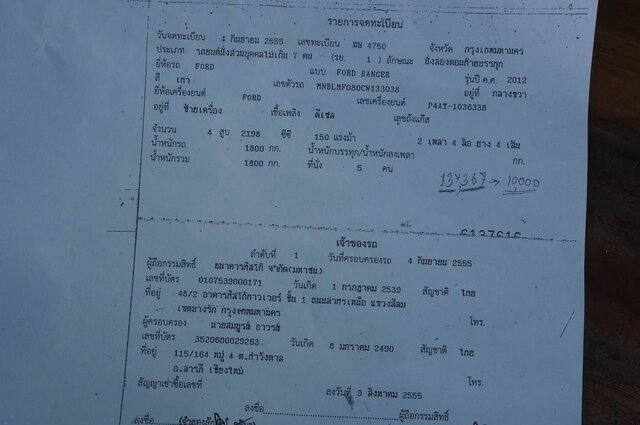 รายการจดทะเบียน
วันจดทะเบียน 4 กันยายน 2555 เลขทะเบียน 4750 จังหวัด กรุงเทพมหานคร
ประเภท รถยนต์นั่งส่วนบุคคลไม่เกิน 7 คน (รย. 1 ) ลักษณะ นั่งสองตอนท้ายบรรทุก
ยี่ห้อรถ FORD แบบ FORD RANGER รุ่นปี ค.ศ. 2012
สี เทา เลขตัวรถ MNBLMF080CW133038 อยู่ที่ กลางขวา
ยี่ห้อเครื่องยนต์ FORD เลขเครื่องยนต์ P4AT-1036338
อยู่ที่ ซ้ายเครื่อง เชื้อเพลิง ดีเซล เลขถังแก๊ส
จำนวน 4 สูบ 2198 ซีซี 150 แรงม้า 2 เพลา 4 ล้อ ยาง 4 เส้น
น้ำหนักรถ 1800 กก. น้ำหนักบรรทุก/น้ำหนักลงเพลา กก.
น้ำหนักรวม 1800 กก. ที่นั่ง 5 คน
134,367 → 10000
เจ้าของรถ
ลำดับที่ 1 วันที่ครอบครองรถ 4 กันยายน 2555
ผู้ถือกรรมสิทธิ์ ธนาคารทิสโก้ จำกัด(มหาชน)
เลขที่บัตร 0107539000171 วันเกิด 1 กรกฎาคม 2539 สัญชาติ ไทย
ที่อยู่ 48/2 อาคารทิสโก้ทาวเวอร์ ชั้น 1 ถนนสาทรเหนือ แขวงสีลม
เขตบางรัก กรุงเทพมหานคร โทร.
ผู้ครอบครอง นายสมบูรณ์ อาวรส์
เลขที่บัตร 3520600029263 วันเกิด 8 มกราคม 2490 สัญชาติ ไทย
ที่อยู่ 115/164 หมู่ 4 ต.ท่าวังตาล
อ.สารภี เชียงใหม่ โทร.
สัญญาเช่าซื้อเลขที่ ลงวันที่ 9 สิงหาคม 2555
ลงชื่อ ผู้ถือกรรมสิทธิ์
ลงชื่อ